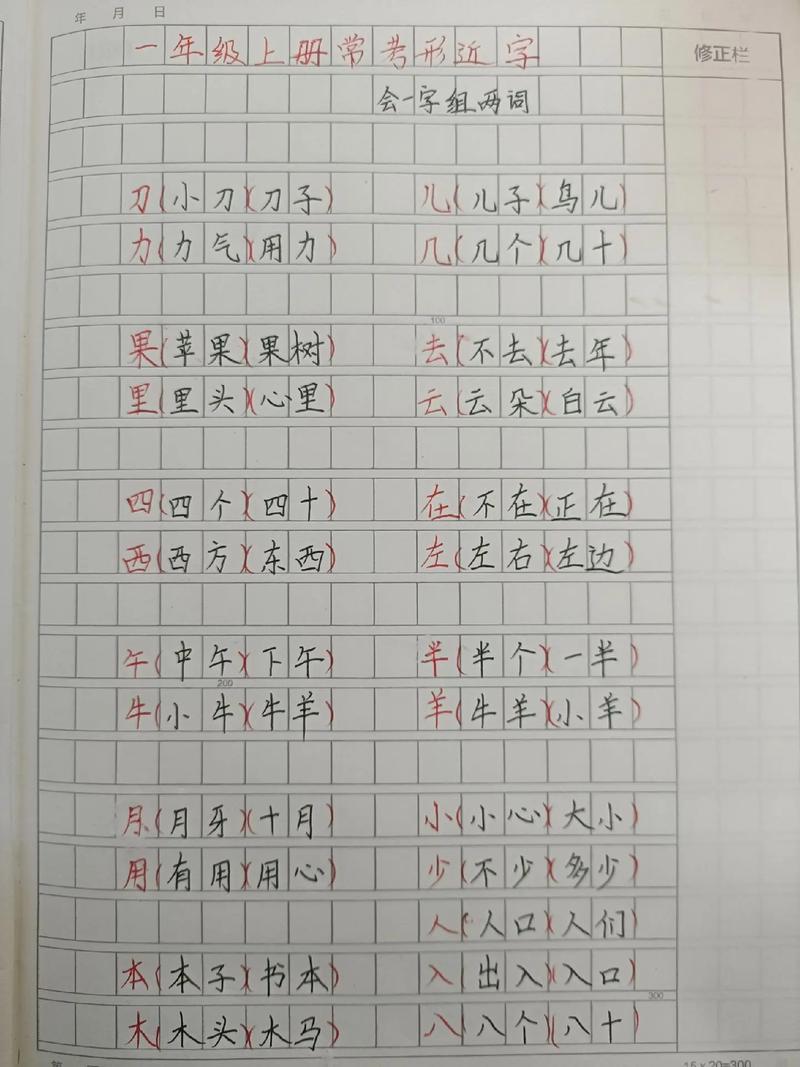 年 月 日
一年级上册常考形近字 修正栏
会一字组两词
刀(小刀)(刀子) 儿(儿子)(鸟儿)
力(力气)(用力) 几(几个)(几十)
100
果(苹果)(果树) 去(不去)(去年)
里(里头)(心里) 云(云朵)(白云)
四(四个)(四十) 在(不在)(正在)
西(西方)(东西) 左(左右)(左边)
午(中午)(下午) 半(半个)(一半)
200
牛(小牛)(牛羊) 羊(牛羊)(小羊)
月(月牙)(十月) 小(小心)(大小)
用(有用)(用心) 少(不少)(多少)
人(人口)(人们)
本(本子)(书本) 入(出入)(入口)
300
木(木头)(木马) 八(八个)(八十)
15×20=300